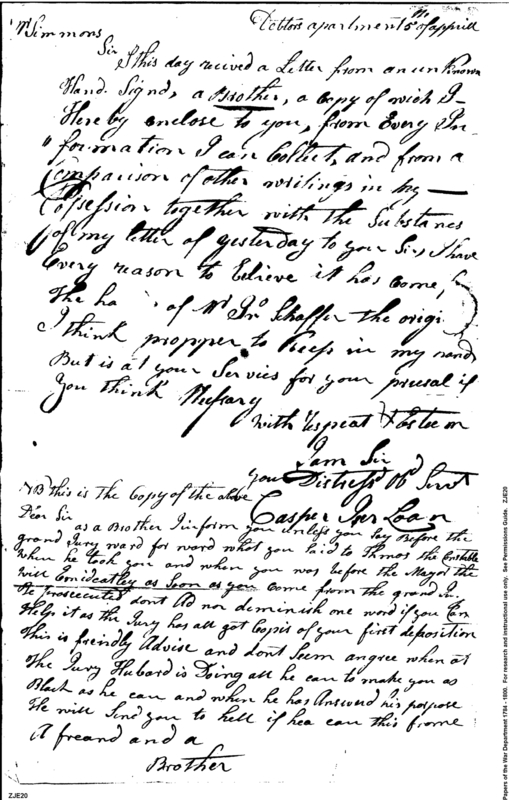 Debtors apartment 5th of apprill
Mr Simmons
Sir I this day recived a Letter from an unknown
Hand. Signd, a Brother, a Copy of wich I
Hereby enclose to you, from Every In-
"formation I can Collect, and from a
Comparison of other writings in my
Possession together with the Substance
of my letter of yesterday to your Sir, I have
Every reason to believe it has come,
The ha of Mr Jno Schaffer the origi
I think propper to keep in my hand
But is at your Service for your prusal if
you think Nessary
with respect & Esteem
I am Sir
your Distressd Obd Servt
Casper Iserloan
NB this is the Copy of the above
Dear Sir
as a Brother I inform you unless you Say Before the
grand Jury word for word what you Said to Thomos the Constable
when he took you and when you was before the Mayor the
will Emideatley as Soon as you Come from the grand Ju.
Be prosecuted dont Ad nor deminish one word if you Can
Help it as the Jury has all got Copis of your first deposition
This is freindly Advise and dont Seem angree when at
The Jury Hubard is Doing all he can to make you as
Black as he can and when he has Answerd his porpose
He will Send you to hell if hea can this frome
A freand and a
Brother
ZJE20
Papers of the War Department 1784 - 1800. For research and instructional use only. See Permissions Guide. ZJE20